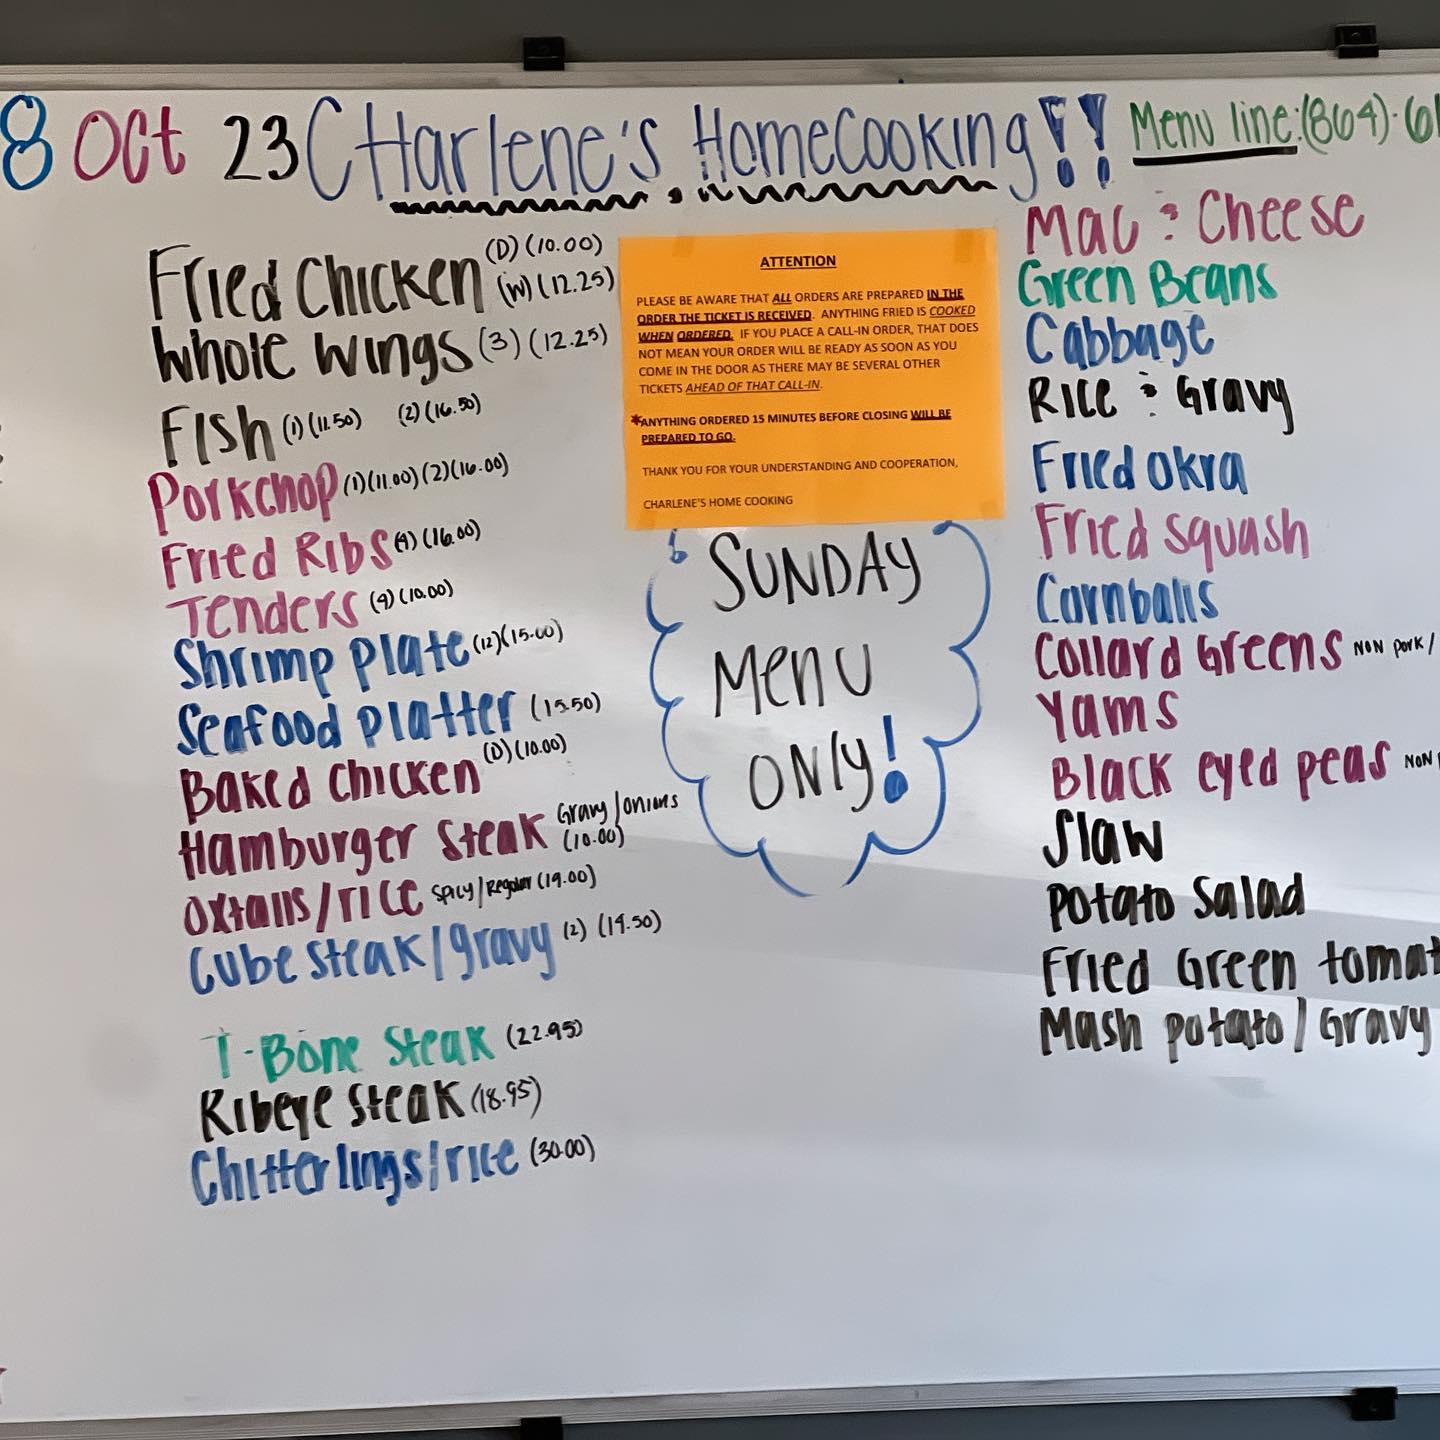 8 Oct 23 CHarlene's HomeCooking!! Menu line:(864)-
Fried Chicken (D)(10.00)
(W)(12.25)
Whole Wings (3)(12.25)
Fish (1)(11.50) (2)(16.50)
Porkchop (1)(11.00)(2)(16.00)
Fried Ribs (4)(16.00)
Tenders (4)(10.00)
Shrimp plate (12)(15.00)
Seafood platter (15.50)
Baked Chicken (D)(10.00)
Hamburger Steak Gravy/onions
(10.00)
Oxtails/rice Spicy/Regular (19.00)
Cube Steak/gravy (2) (14.50)
T-Bone Steak (22.95)
Ribeye Steak (18.95)
Chitterlings/rice (30.00)
ATTENTION
PLEASE BE AWARE THAT ALL ORDERS ARE PREPARED IN THE
ORDER THE TICKET IS RECEIVED. ANYTHING FRIED IS COOKED
WHEN ORDERED. IF YOU PLACE A CALL-IN ORDER, THAT DOES
NOT MEAN YOUR ORDER WILL BE READY AS SOON AS YOU
COME IN THE DOOR AS THERE MAY BE SEVERAL OTHER
TICKETS AHEAD OF THAT CALL-IN.
*ANYTHING ORDERED 15 MINUTES BEFORE CLOSING WILL BE
PREPARED TO GO.
THANK YOU FOR YOUR UNDERSTANDING AND COOPERATION,
CHARLENE'S HOME COOKING
SUNDAY
MENU
ONLY!
Mac & Cheese
Green Beans
Cabbage
Rice & Gravy
Fried Okra
Fried Squash
Cornballs
Collard Greens NON Pork/
Yams
Black eyed peas NON
Slaw
Potato Salad
Fried Green tomat
Mash potato/Gravy